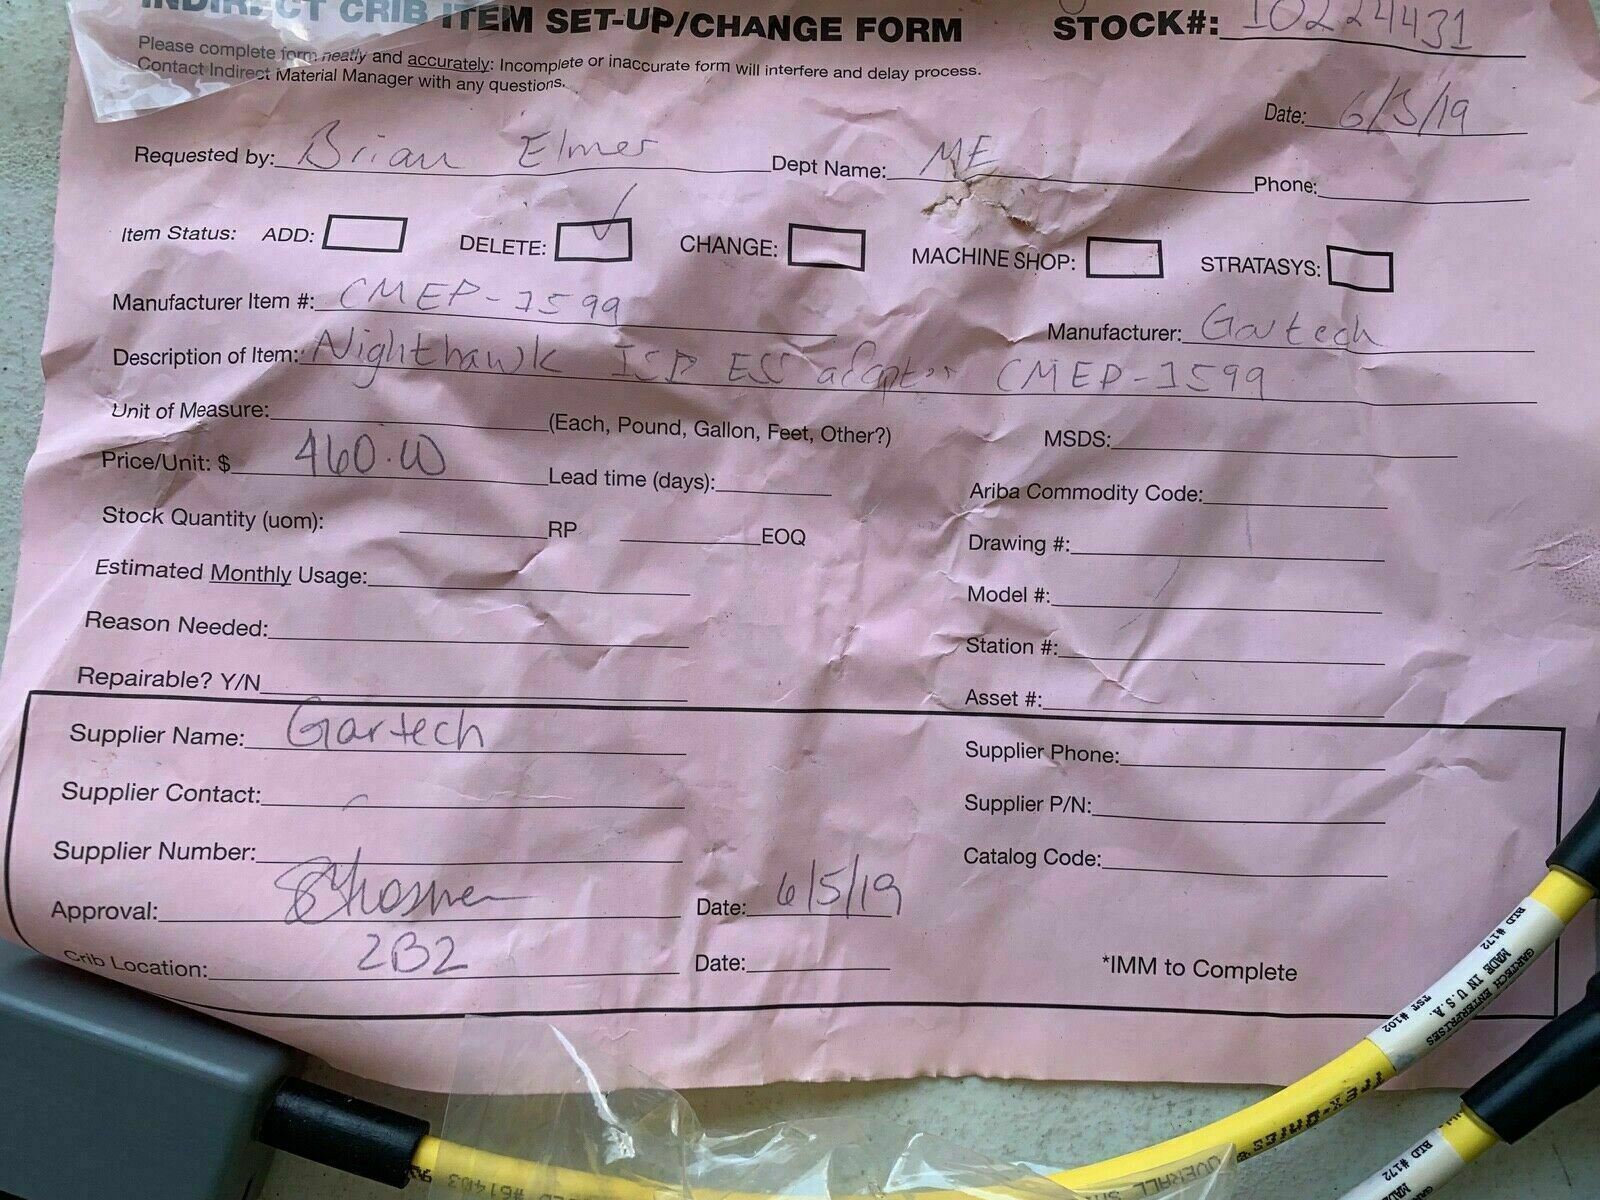 INDIRECT CRIB ITEM SET-UP/CHANGE FORM STOCK#: 10224431
Please complete form neatly and accurately: Incomplete or inaccurate form will interfere and delay process.
Contact Indirect Material Manager with any questions.
Date: 6/5/19
Requested by: Brian Elmer Dept Name: ME Phone:
Item Status: ADD: DELETE: ✓ CHANGE: MACHINE SHOP: STRATASYS:
Manufacturer Item #: CMEP-1599 Manufacturer: Gartech
Description of Item: Nighthawk ISD ESS adapter CMEP-1599
Unit of Measure: (Each, Pound, Gallon, Feet, Other?) MSDS:
Price/Unit: $ 460.00 Lead time (days): Ariba Commodity Code:
Stock Quantity (uom): RP EOQ Drawing #:
Estimated Monthly Usage: Model #:
Reason Needed: Station #:
Repairable? Y/N Asset #:
Supplier Name: Gartech Supplier Phone:
Supplier Contact: Supplier P/N:
Supplier Number: Catalog Code:
Approval: Date: 6/5/19
Crib Location: 2B2 Date: *IMM to Complete
GARTECH ENTERPRISES
MADE IN U.S.A.
BLD #172 TST #102
BLD #172
MADE
#61403
OVERALL